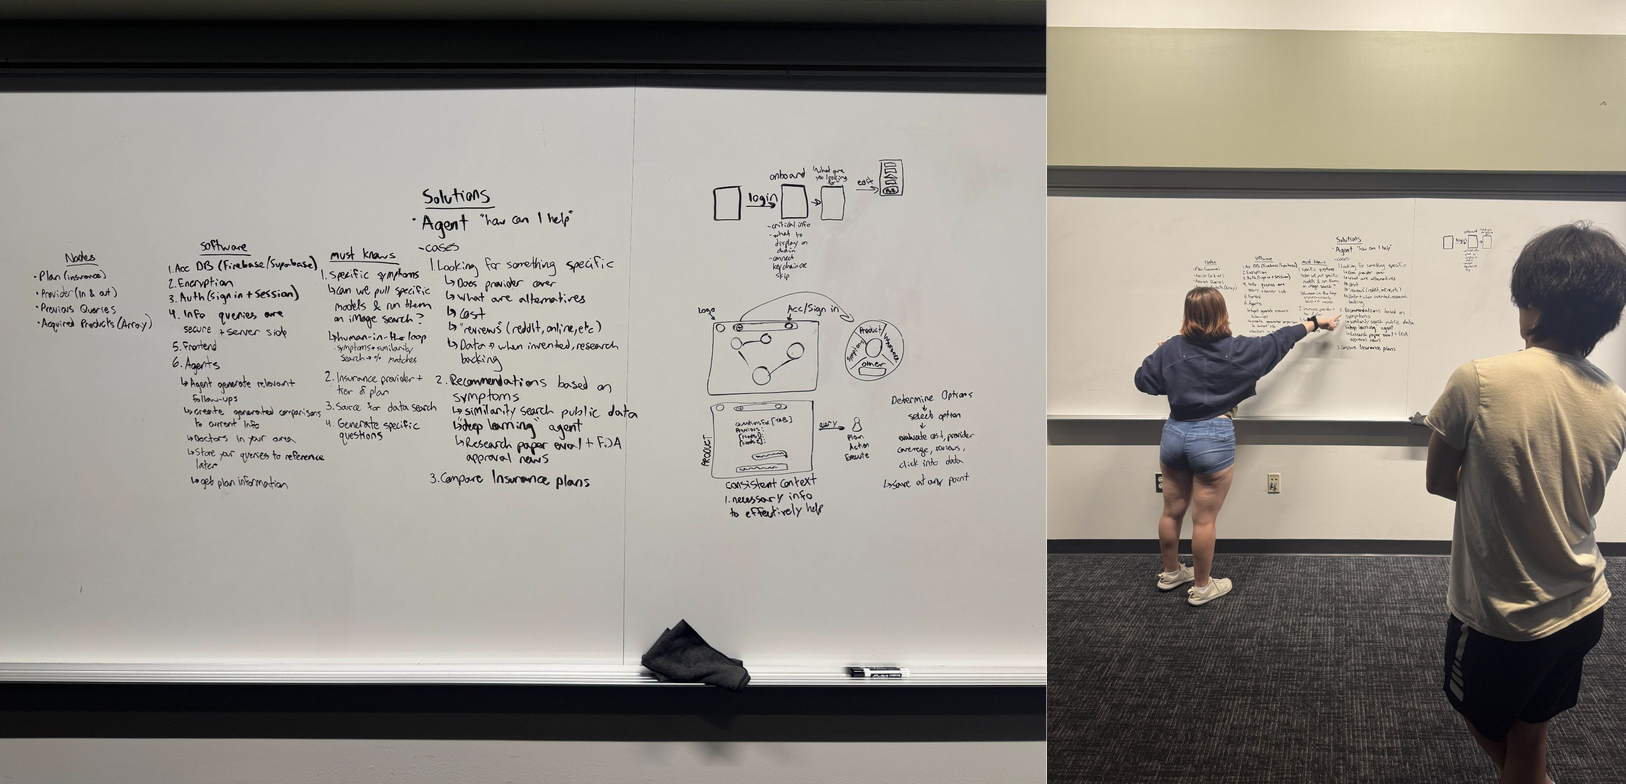 Nodes
• Plan (insurance)
• Provider (In & out)
• Previous Queries
• Acquired Products (Array)
software
1. Acc DB (Firebase/Supabase)
2. Encryption
3. Auth (Sign in + Session)
4. Info queries are
secure + server side
5. Frontend
6. Agents
↳ Agent generate relevant
follow-ups
↳ create generated comparisons
to current info
↳ Doctors in your area
↳ Store your queries to reference
later
↳ get plan information
must knows
1. Specific symptoms
↳ can we pull specific
models & run them
on image search?
↳ human-in-the loop
- symptoms → similarity
search → % matches
2. Insurance provider +
tier & plan
3. Source for data search
4. Generate specific
questions
Solutions
• Agent "how can I help"
- cases
1. Looking for something specific
↳ Does provider cover
↳ What are alternatives
↳ Cost
↳ "reviews" (reddit, online, etc)
↳ Data → when invented, research
backing
2. Recommendations based on
symptoms
↳ similarity search public data
↳ "deep learning" agent
↳ Research paper eval + FDA
approval news
3. Compare Insurance plans
login
onboard
what are
you looking
edit
- critical info
- what to
display on
- connect
skip
Logo
Acc/Sign in
Product
Insurance
other
Symptoms
PRODUCT
query
Plan
Action
Execute
consistent context
1. necessary info
to effectively help
Determine Options
↓
select option
↓
evaluate cost, provider
coverage, reviews,
click into data
↳ Save at any point